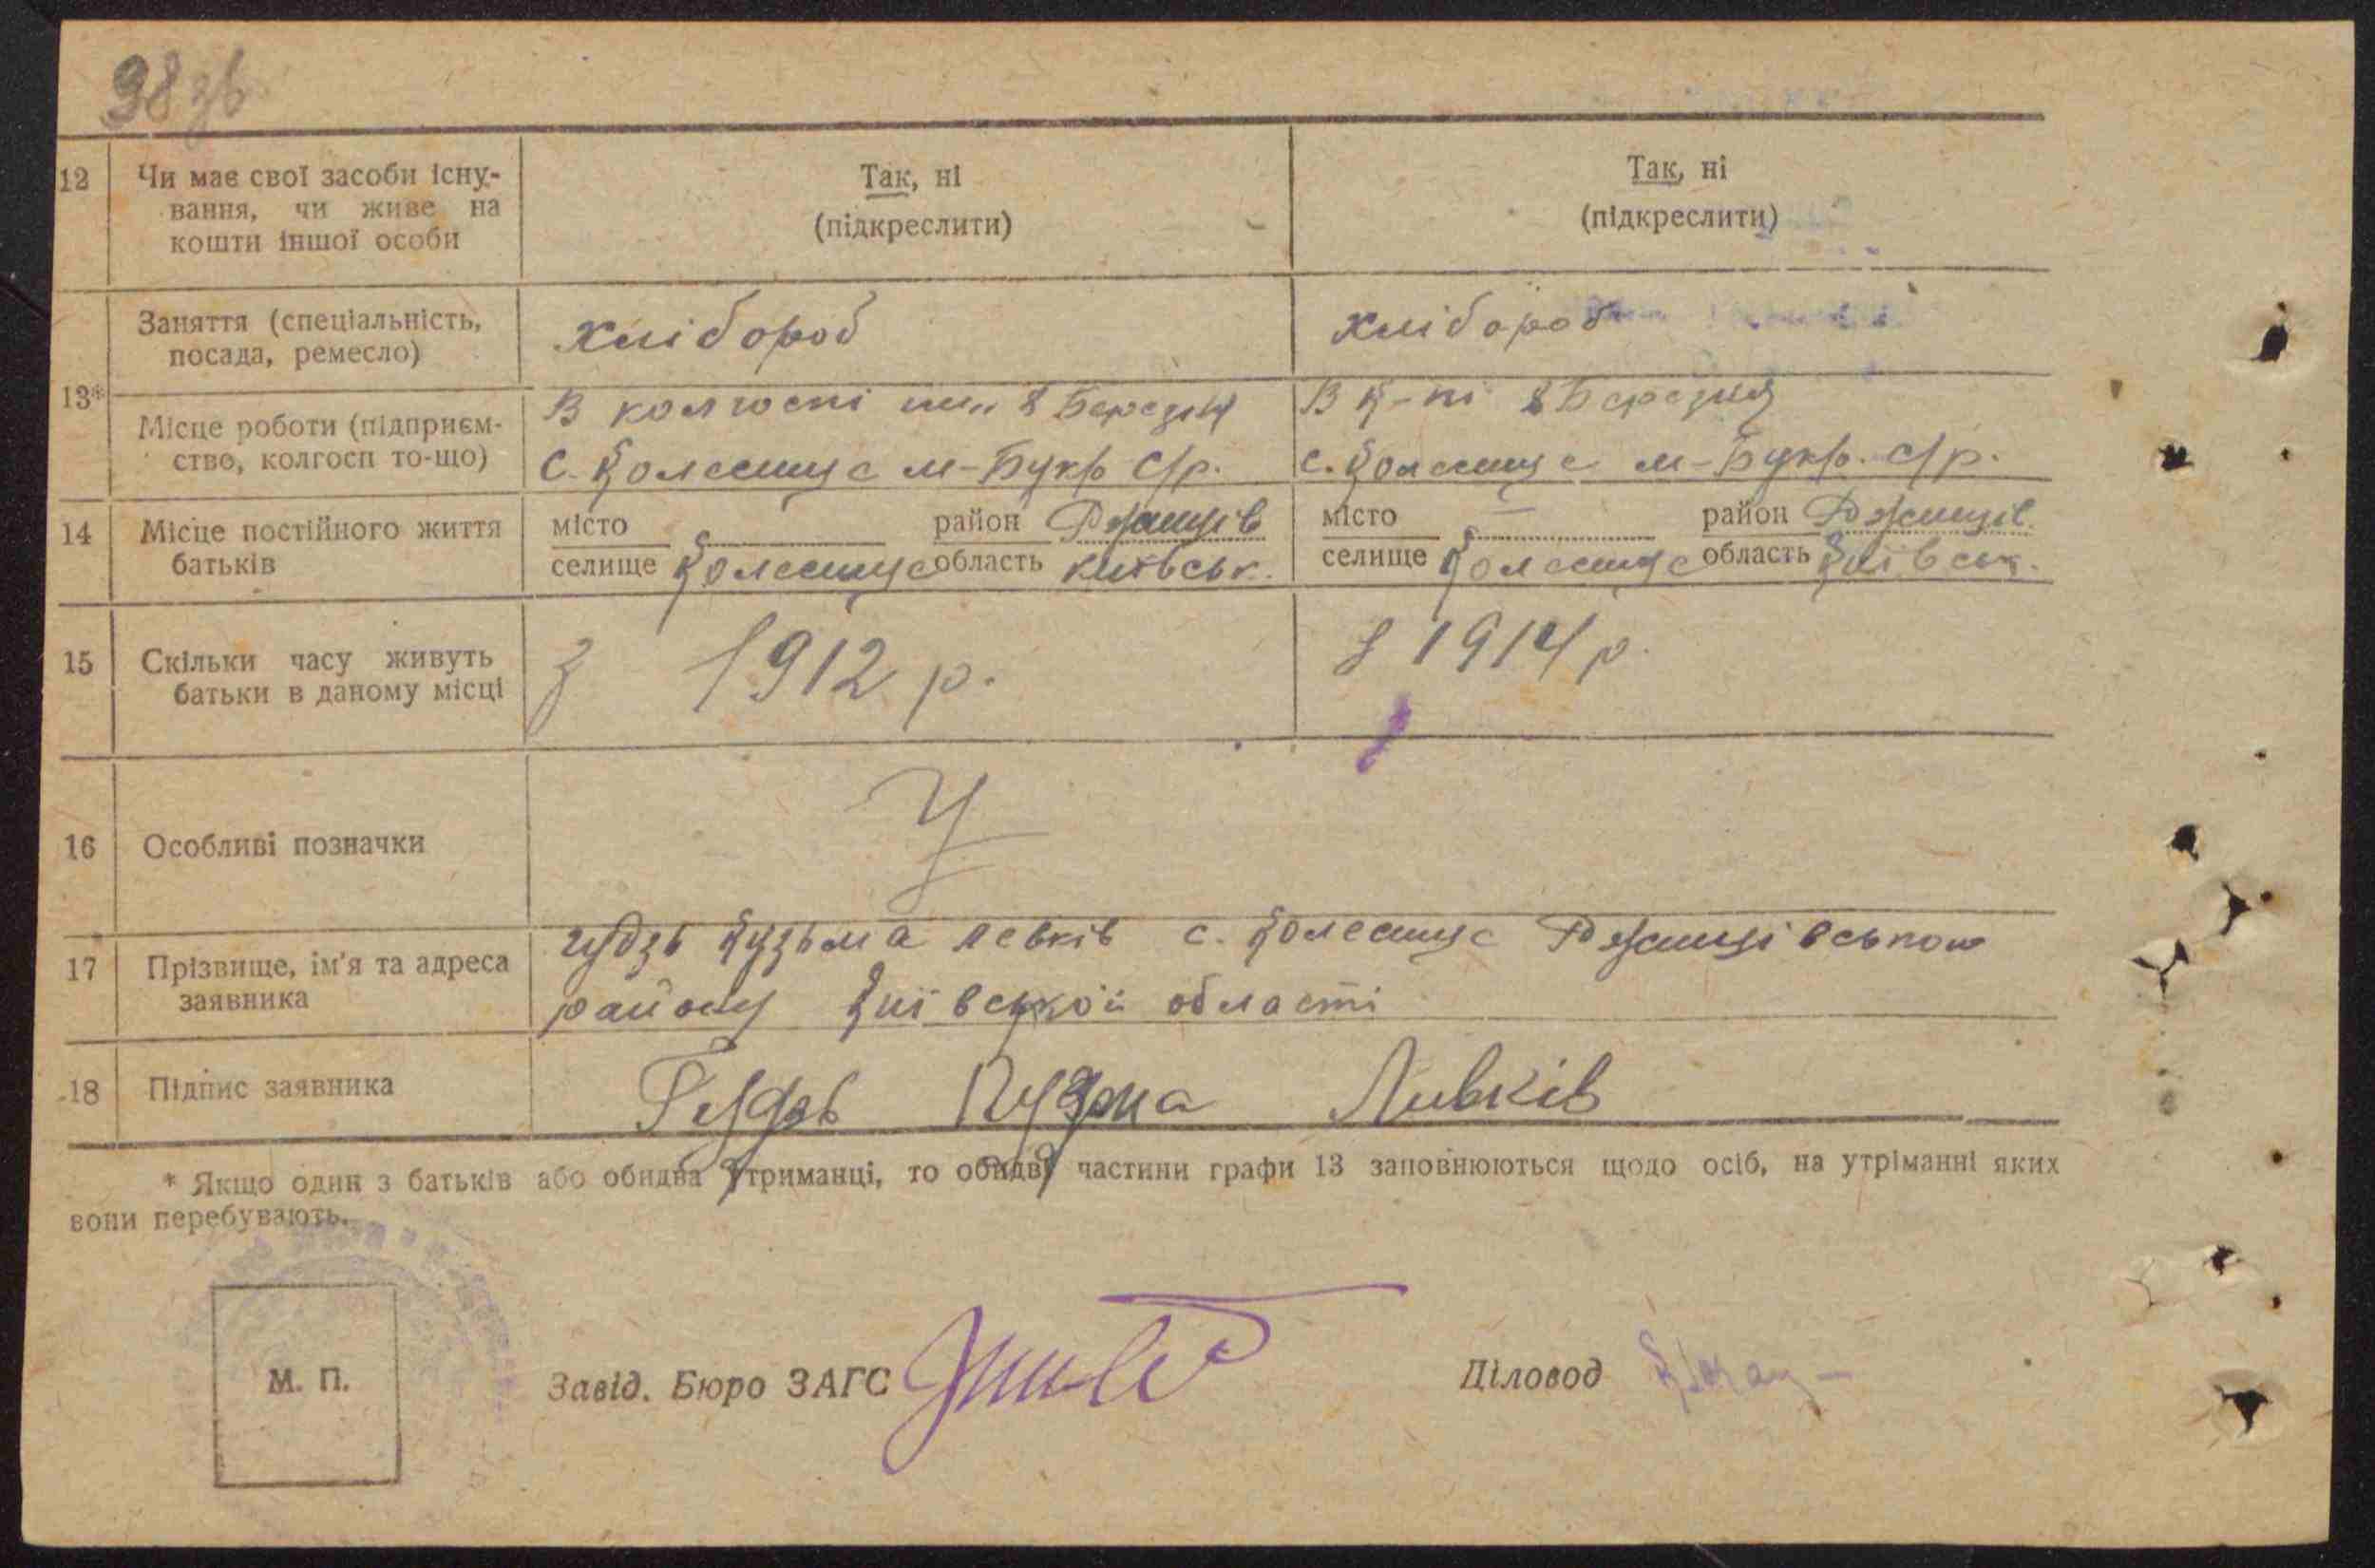 38 зв
12 Чи має свої засоби існу- Так, ні Так, ні
вання, чи живе на (підкреслити) (підкреслити)
кошти іншої особи
Заняття (спеціальність, хлібороб хлібороб
посада, ремесло)
13* Місце роботи (підприєм- В колгоспі им. 8 Березня В к-пі 8 Березня
ство, колгосп то-що) с. Колесище м-Букр с/р. с. Колесище м-Букр. с/р.
14 Місце постійного життя місто район Ржищів місто район Ржищів.
батьків селище Колесище область київськ. селище Колесище область Київськ.
15 Скільки часу живуть З 1912 р. З 1914 р.
батьки в даному місці
16 Особливі позначки
17 Прізвище, ім'я та адреса гудзь Кузьма левків с. Колесище Ржищівського
заявника району Київської області
18 Підпис заявника Гудзь Кузма Ливків
* Якщо один з батьків або обидва утриманці, то обидві частини графи 13 заповнюються щодо осіб, на утріманні яких
вони перебувають.
М. П. Завід. Бюро ЗАГС Діловод